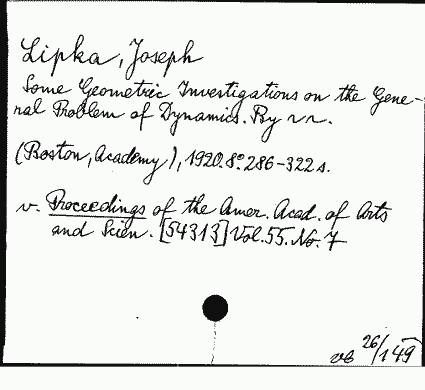 Lipka, Joseph
Some Geometric Investigations on the Gene-
ral Problem of Dynamics. By
(Boston, Academy), 1920. 8º. 286-322 s.
v. Proceedings of the Amer. Acad. of Arts
and Scien. [54313] Vol. 55. No. 7
26/149